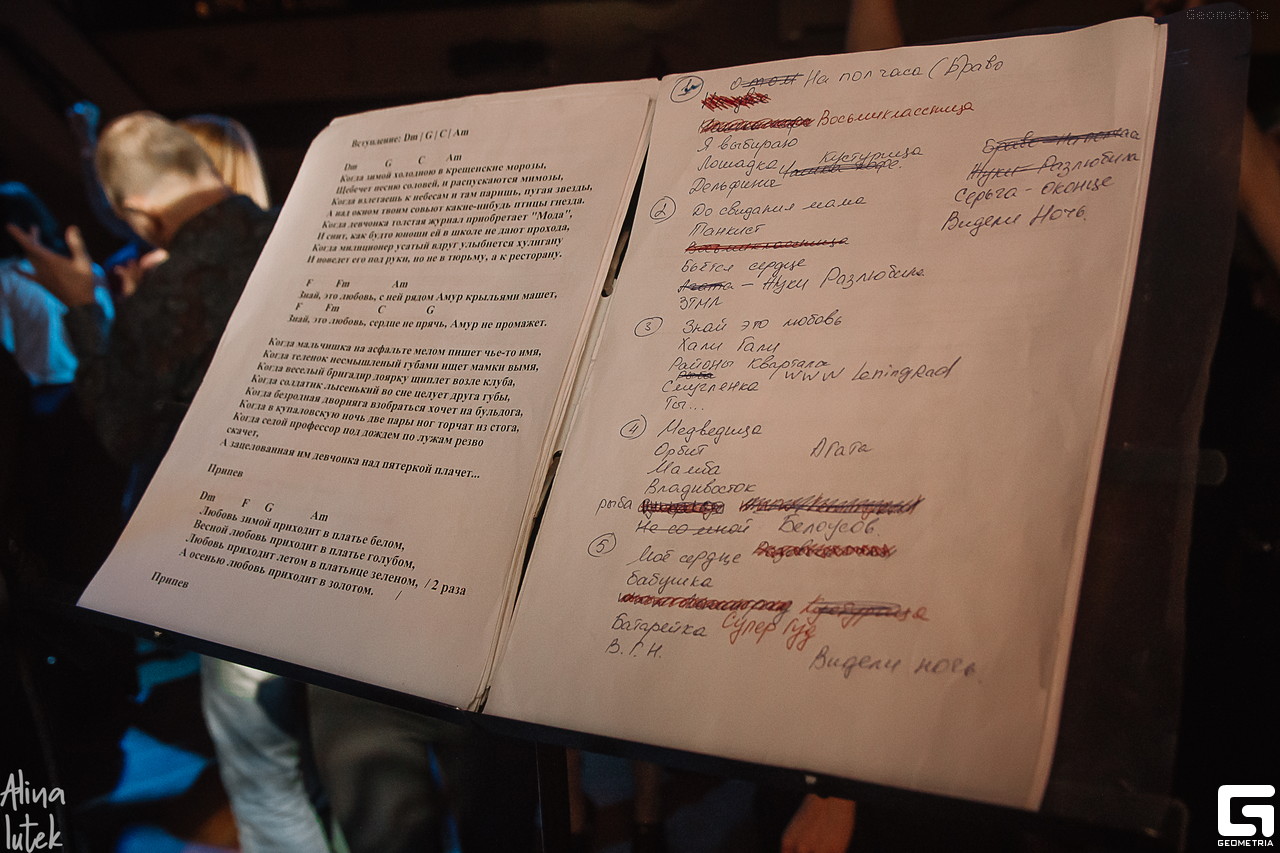 Geometria
Вступление: Dm | G | C | Am
Dm G C Am
Когда зимой холодною в крещенские морозы,
Щебечет песню соловей, и распускаются мимозы,
Когда взлетаешь к небесам и там паришь, пугая звезды,
А над окном твоим совьют какие-нибудь птицы гнезда.
Когда девчонка толстая журнал приобретает "Мода",
И спит, как будто юноши ей в школе не дают прохода,
Когда милиционер усатый вдруг улыбнется хулигану
И поведет его под руки, но не в тюрьму, а к ресторану.
F Fm Am
Знай, это любовь, с ней рядом Амур крыльями машет,
F Fm C G
Знай, это любовь, сердце не прячь, Амур не промажет.
Когда мальчишка на асфальте мелом пишет чье-то имя,
Когда теленок несмышленый губами ищет мамки вымя,
Когда веселый бригадир доярку щиплет возле клуба,
Когда солдатик лысенький во сне целует друга губы,
Когда безродная дворняга взобраться хочет на бульдога,
Когда в купаловскую ночь две пары ног торчат из стога,
Когда седой профессор под дождем по лужам резво
скачет,
А зацелованная им девчонка над пятеркой плачет...
Припев
Dm F G Am
Любовь зимой приходит в платье белом,
Весной любовь приходит в платье голубом,
Любовь приходит летом в платьице зеленом, / 2 раза
А осенью любовь приходит в золотом. /
Припев
1 На пол часа (Браво
Восьмиклассница
Я выбираю
Лошадка Кустурица
Дельфина
Нуки Разлюбила
Серьга - Оконце
Видели Ночь.
2 До свидания мама
Танкист
Восьмиклассница
Бьётся сердце
Агата - Нуки Разлюбила
ЗТМЛ
3 Знай это любовь
Хали Гали
Районы Кварталы
Рыба www Leningrad
Смуглянка
Ты...
4 Медведица
Орбит Агата
Мамба
Владивосток
рыба
Не со мной Белоусов.
5 Моё сердце
бабушка
Кустурица
Батарейка Супер Гуд
В.Г.Н.
Видели ночь.
Alina
lutek
GEOMETRIA